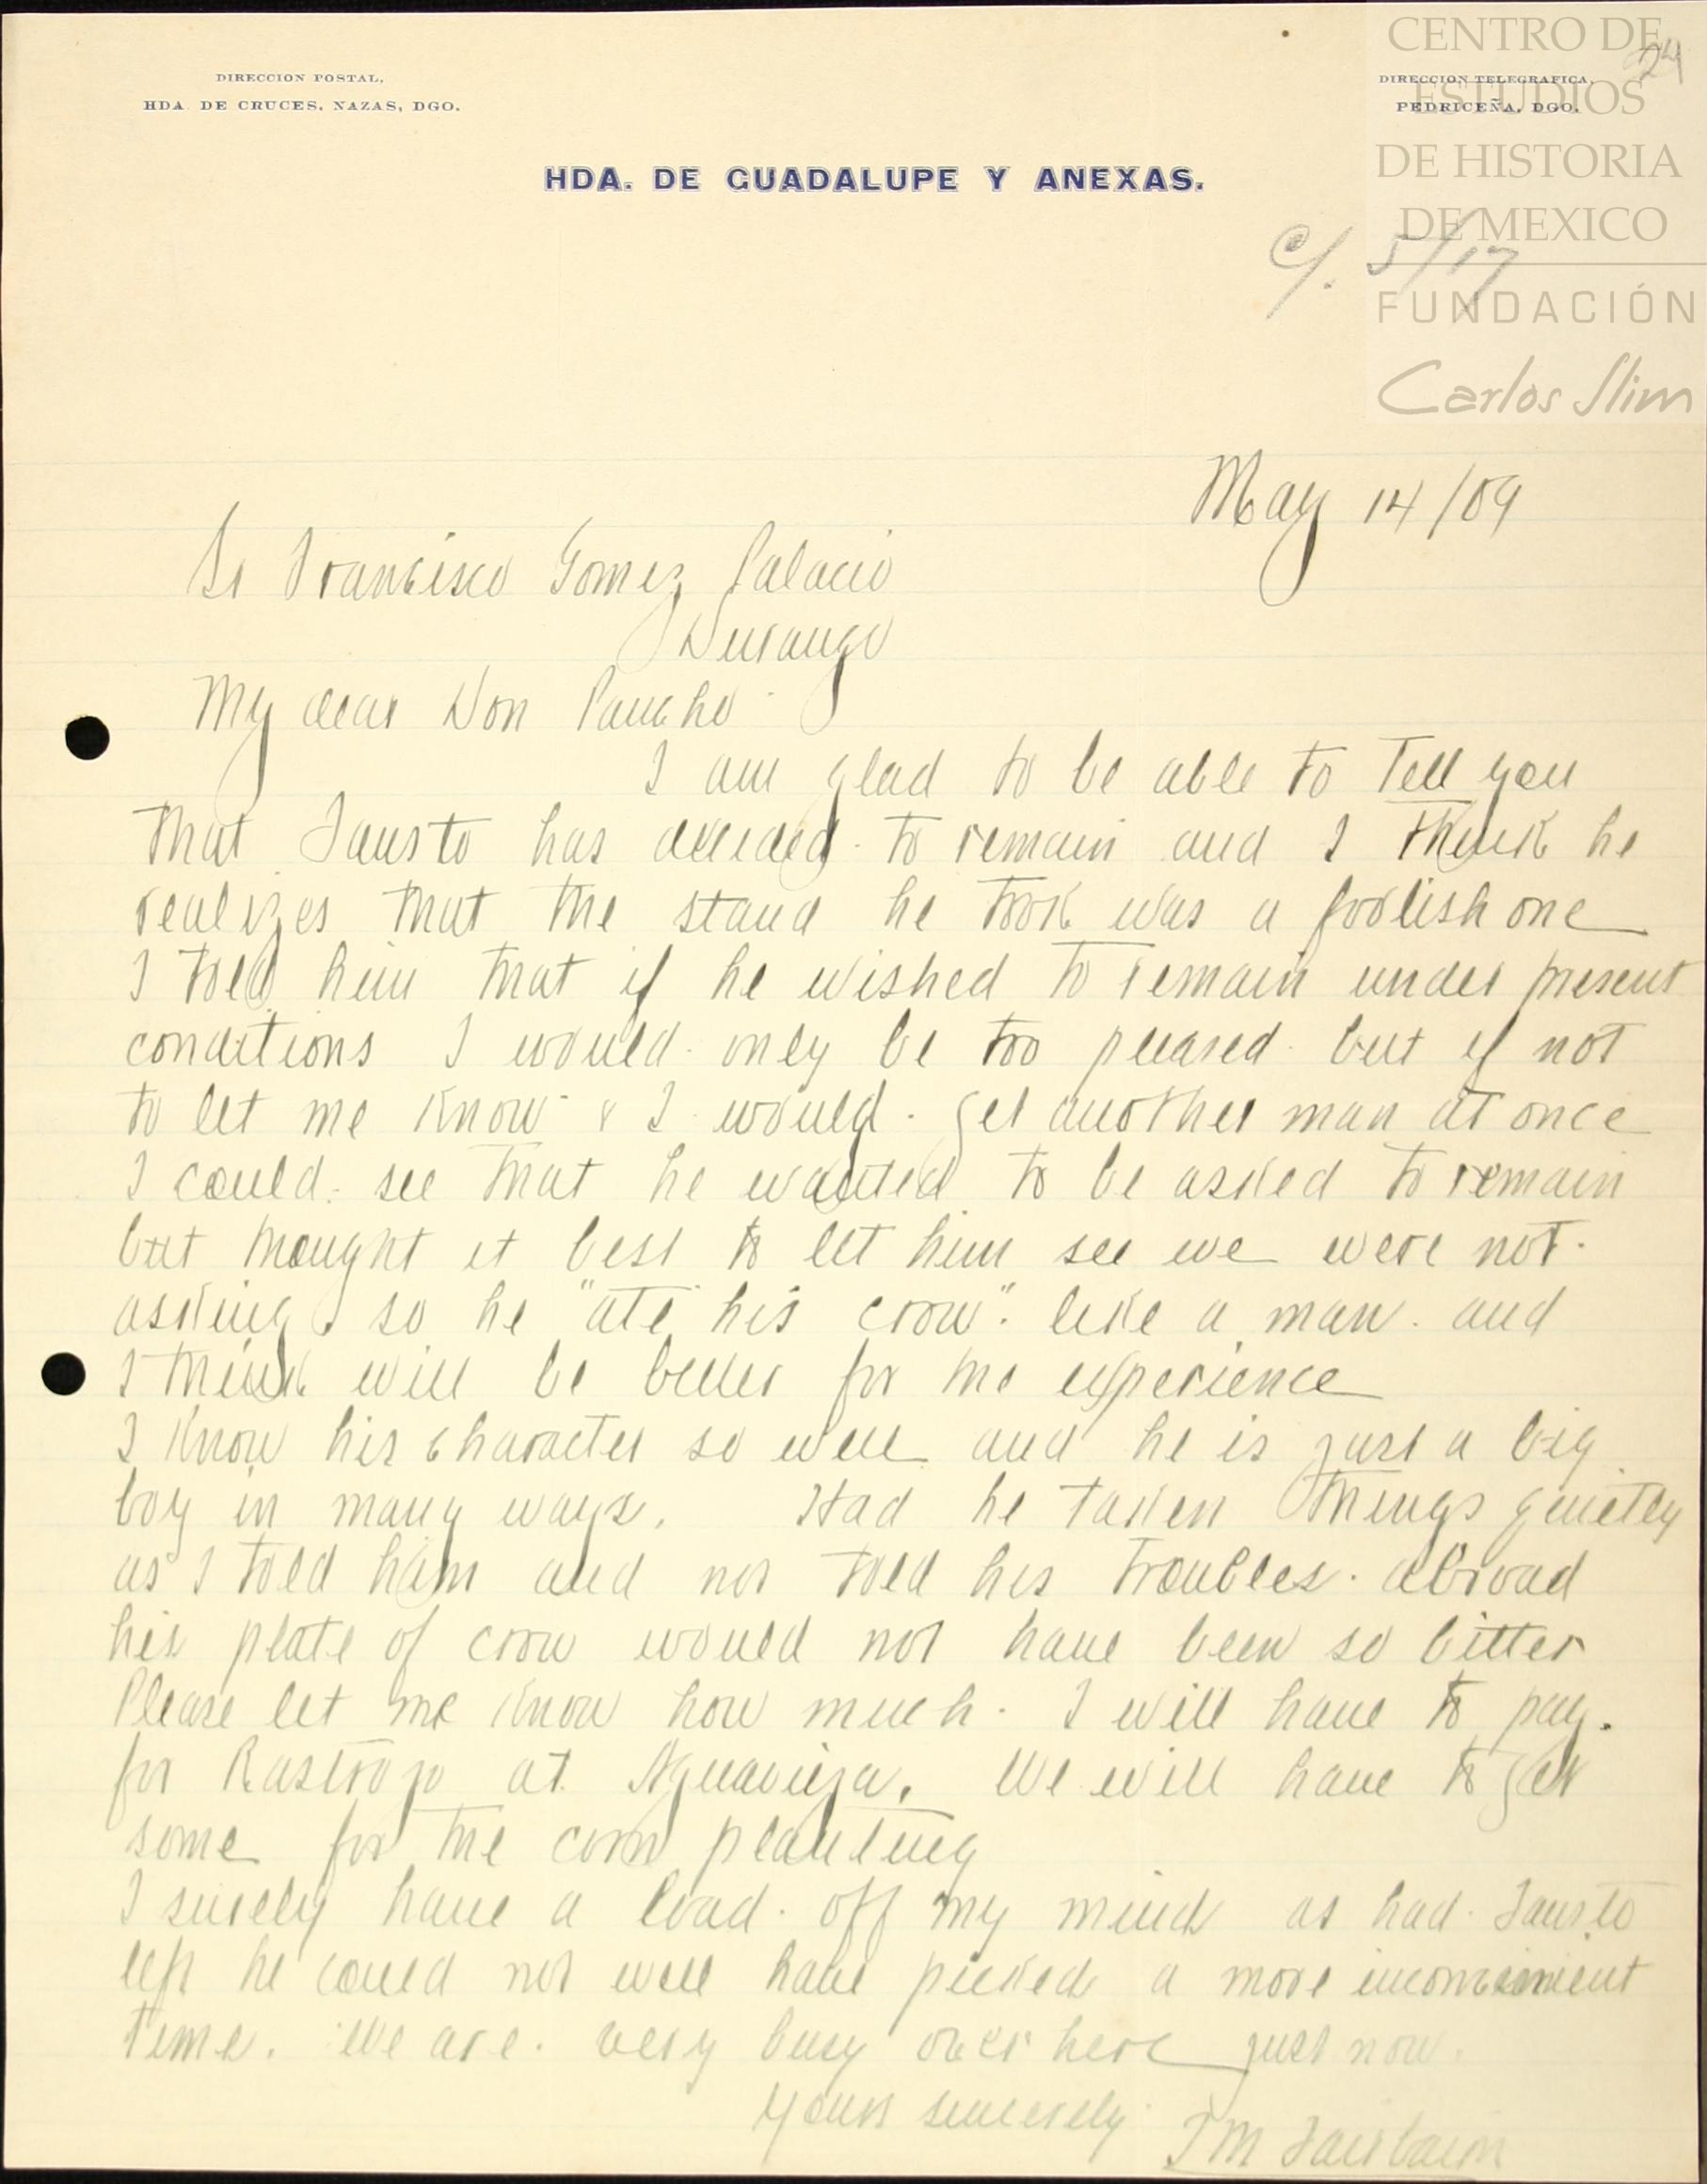 CENTRO DE
ESTUDIOS
DE HISTORIA
DE MEXICO
FUNDACIÓN
Carlos Slim
24
DIRECCION POSTAL,
HDA. DE CRUCES, NAZAS, DGO.
DIRECCION TELEGRAFICA,
PEDRICEÑA, DGO.
HDA. DE GUADALUPE Y ANEXAS.
c/. 5/17
May 14/09
Sr Francisco Gomez Palacio
Durango
My dear Don Pancho
I am glad to be able to tell you
that Fausto has decided to remain and I think he
realizes that the stand he took was a foolish one
I told him that if he wished to remain under present
conditions I would only be too pleased but if not
to let me know & I would get another man at once
I could see that he wanted to be asked to remain
but thought it best to let him see we were not
asking so he "ate his crow" like a man and
I think will be better for the experience
I know his character so well and he is just a big
boy in many ways. Had he taken things quietly
as I told him and not told his troubles abroad
his plate of crow would not have been so bitter
Please let me know how much I will have to pay
for Rastrojo at Aguavieja. We will have to get
some for the corn planting
I surely have a load off my mind as had Fausto
left he could not well have picked a more inconvenient
time. We are very busy over here just now.
Yours sincerely JM Fairbairn